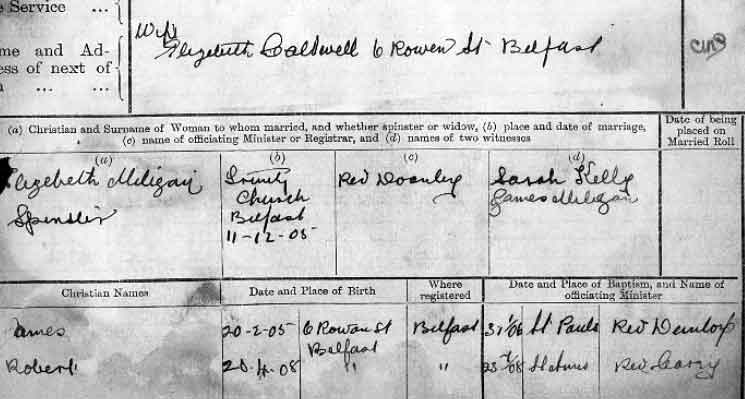 Service ...
Wife
Elizebeth Caldwell 6 Rowen St Belfast
me and Ad-
ess of next of
... ...
(a) Christian and Surname of Woman to whom married, and whether spinster or widow, (b) place and date of marriage,
(c) name of officiating Minister or Registrar, and (d) names of two witnesses
Date of being
placed on
Married Roll
(a) (b) (c) (d)
Elizebeth Miligan Trinity Rev Sarah Kelly
Spinster Church James Miligan
Belfast
11-12-05
Christian Names Date and Place of Birth Where
registered Date and Place of Baptism, and Name of
officiating Minister
James 20-2-05 6 Rowan St Belfast St Pauls Rev Dunlop
Belfast
Robert 20-4-08 " " Rev